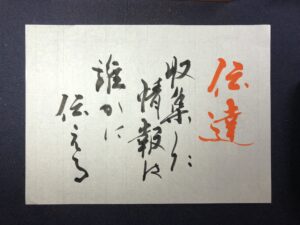 伝達
収集した
情報は
誰かに
伝える